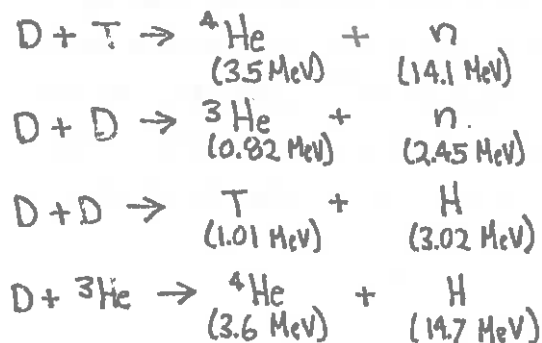 D + T → ⁴He + n
(3.5 MeV) (14.1 MeV)
D + D → ³He + n.
(0.82 MeV) (2.45 MeV)
D + D → T + H
(1.01 MeV) (3.02 MeV)
D + ³He → ⁴He + H
(3.6 MeV) (14.7 MeV)